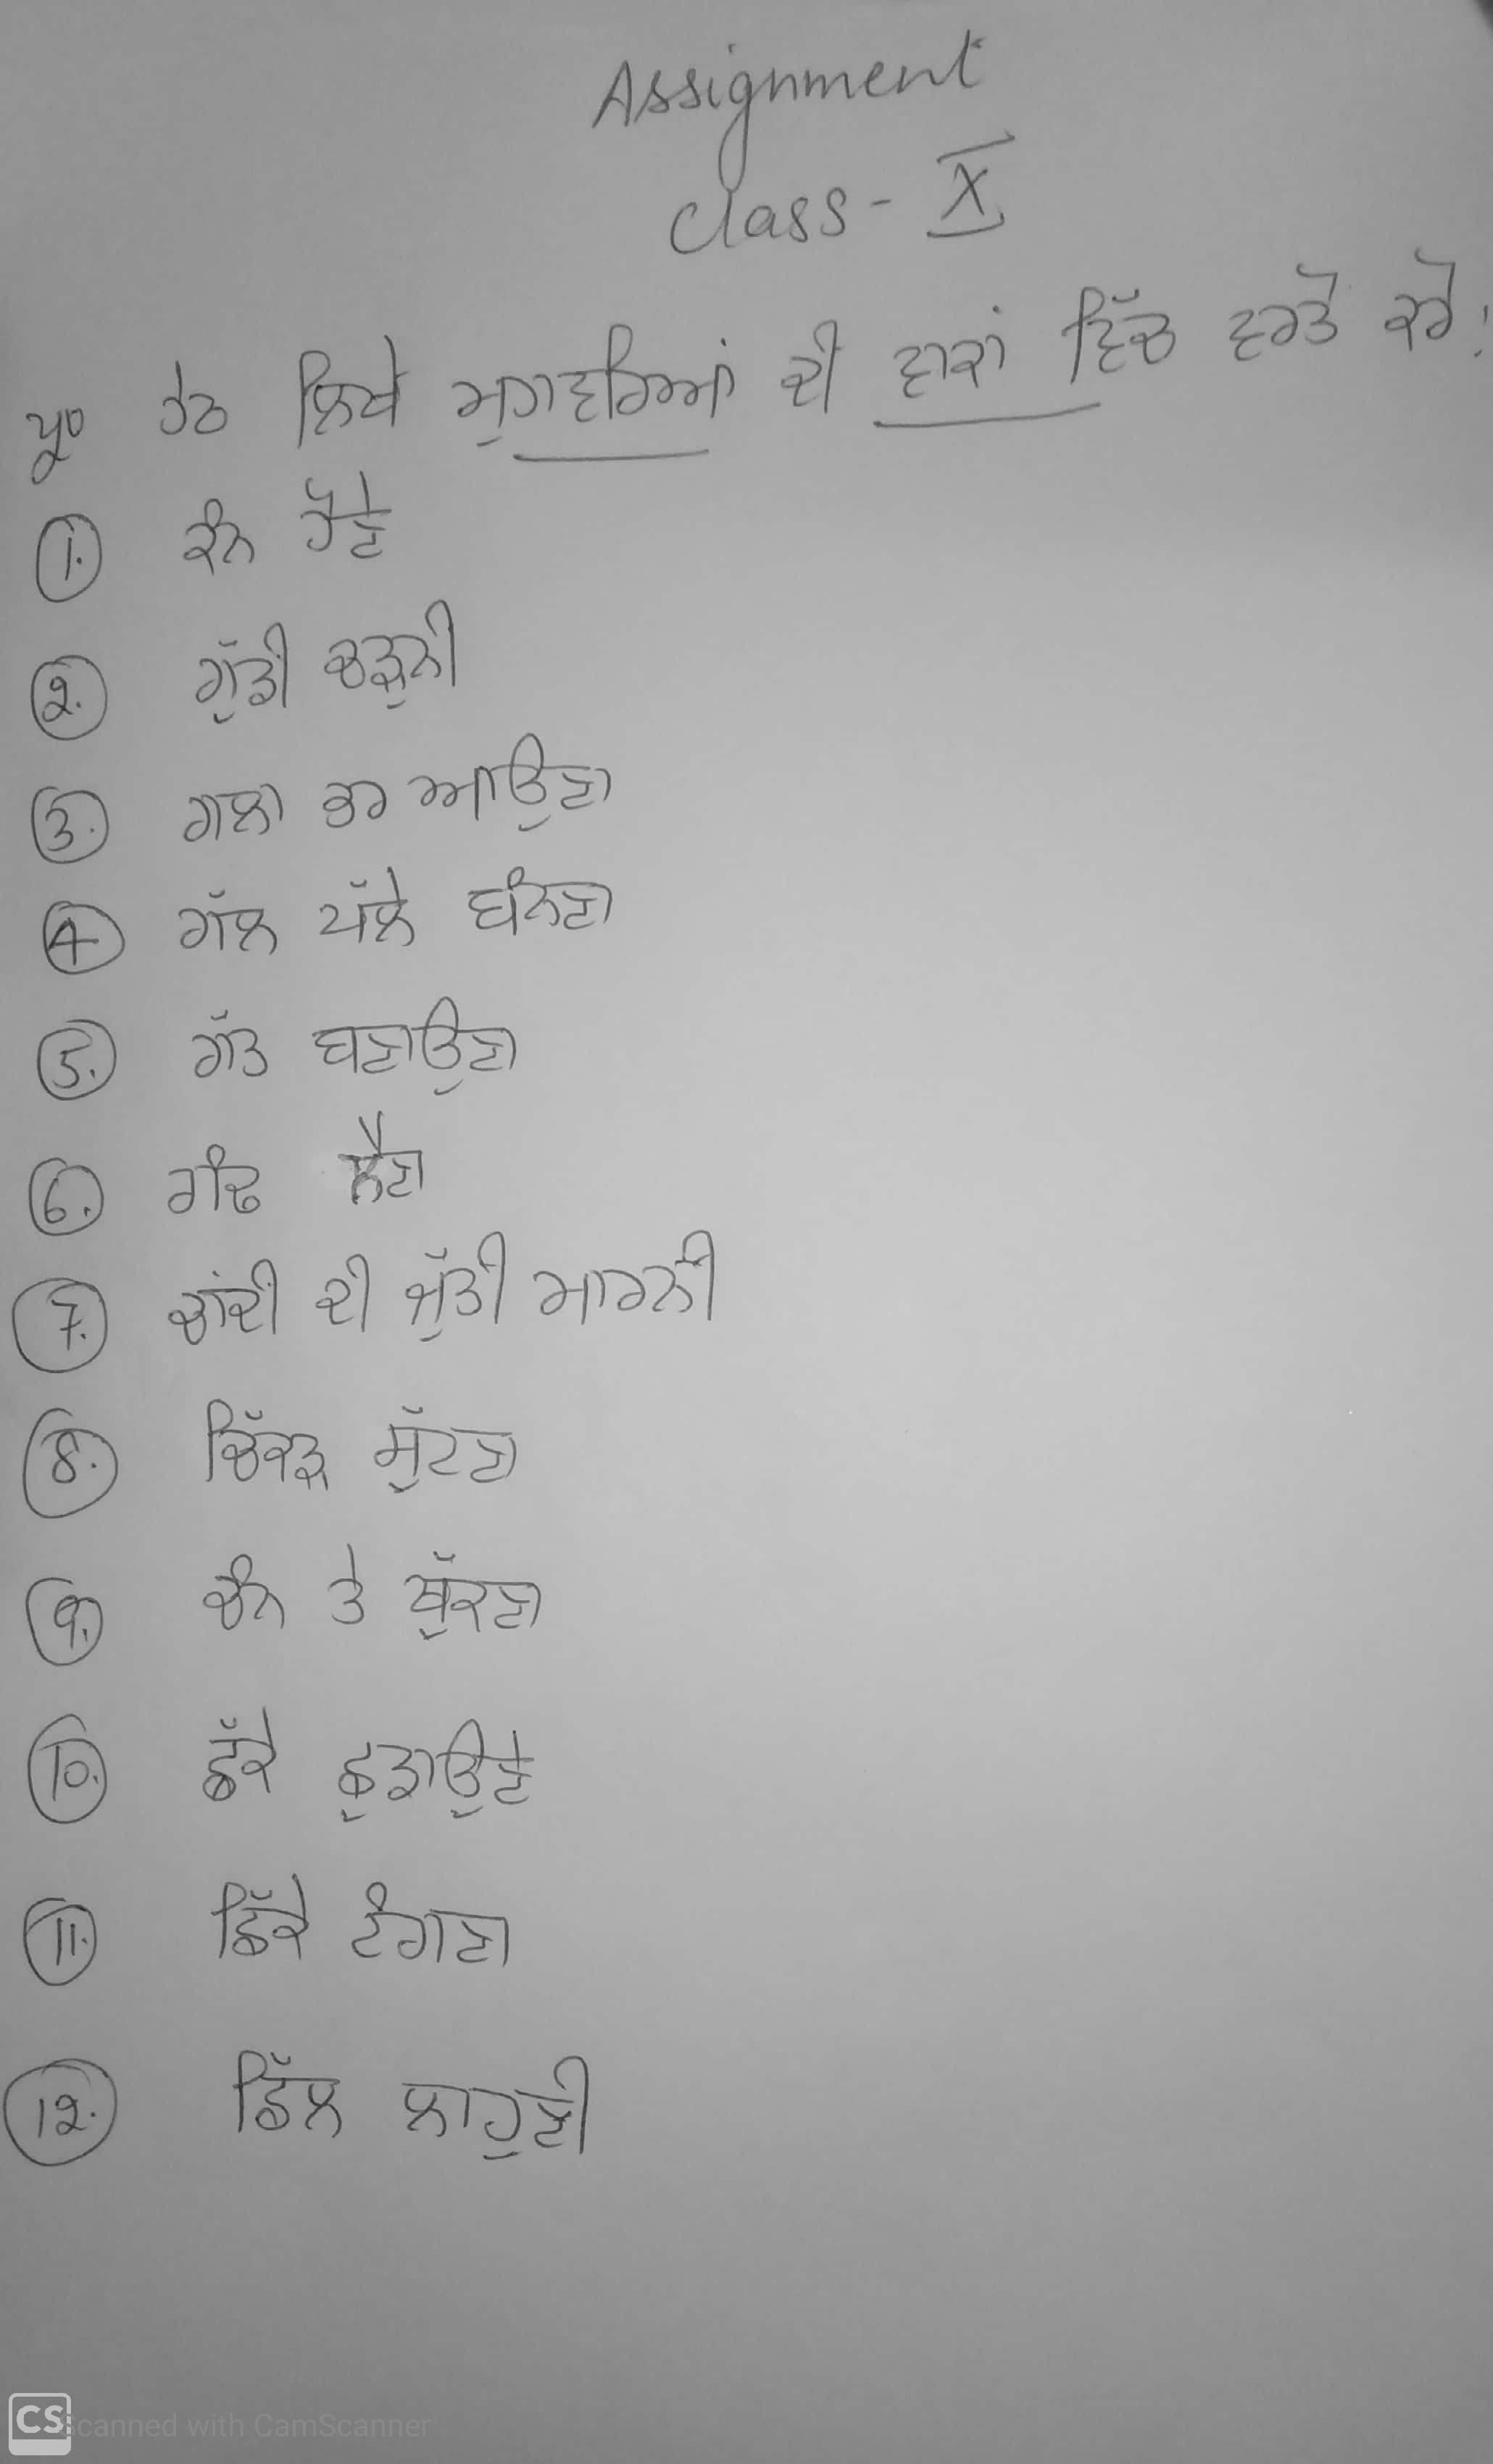 Assignment
Class - X
ਪ੍ਰ੦ ਹੇਠ ਲਿਖੇ ਮੁਹਾਵਰਿਆਂ ਦੀ ਵਾਕਾਂ ਵਿੱਚ ਵਰਤੋ ਕਰੋ।
1. ਕੰਨ ਹੋਣੇ
2. ਗੁੱਡੀ ਚੜ੍ਹਨੀ
3. ਗਲਾ ਭਰ ਆਉਣਾ
4 ਗੱਲ ਪੱਲੇ ਬੰਨਣਾ
5. ਗੱਤ ਬਣਾਉਣਾ
6. ਗੰਢ ਲੈਣਾ
7. ਚਾਂਦੀ ਦੀ ਜੁੱਤੀ ਮਾਰਨੀ
8. ਚਿੱਕੜ ਸੁੱਟਣਾ
9. ਚੰਨ ਤੇ ਥੁੱਕਣਾ
10. ਛੱਕੇ ਛੁਡਾਉਣੇ
11. ਛਿੱਕੇ ਟੰਗਣਾ
12. ਛਿੱਲ ਲਾਹੁਣੀ
CS Scanned with CamScanner